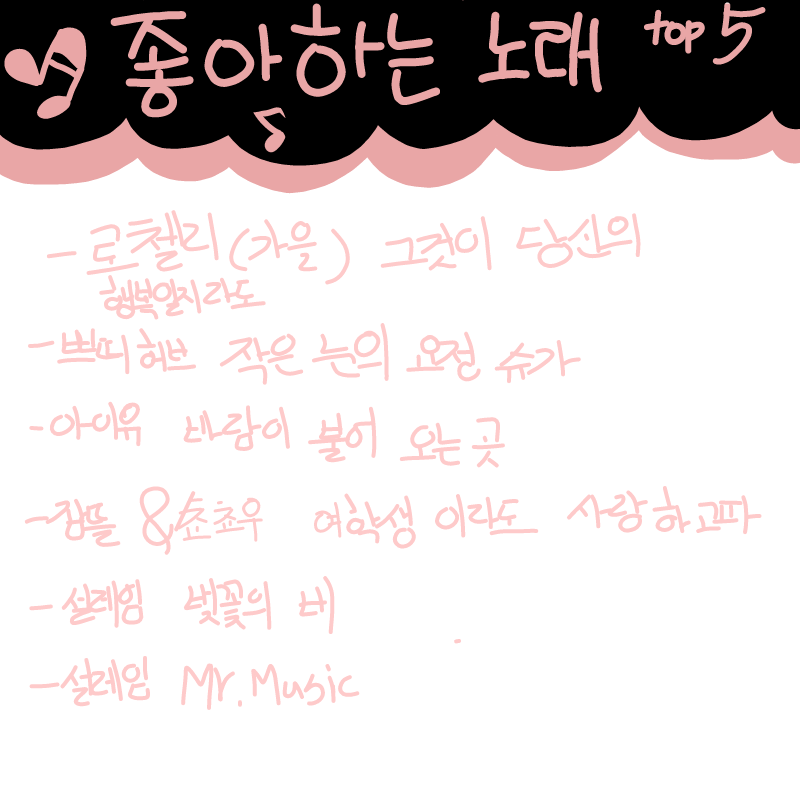 좋아하는 노래 top 5
- 로첼리(가을) 그것이 당신의
행복일지라도
- 쁘띠허브 작은 눈의 요정 슈가
- 아이유 바람이 불어 오는 곳
- 잠뜰 &쵼쵸우 여학생 이라도 사랑하고파
- 설레임 벚꽃의 비
- 설레임 Mr. Music